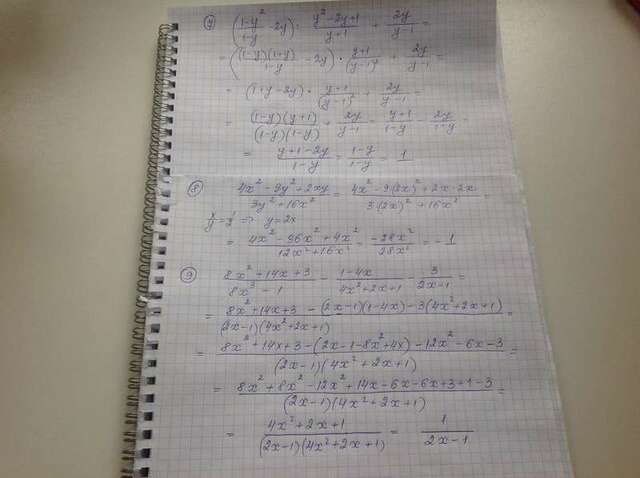 7) ((1-y²)/(1-y) - 2y) : (y²-2y+1)/(y+1) + 2y/(y-1) =
= ((1-y)(1+y)/(1-y) - 2y) · (y+1)/(y-1)² + 2y/(y-1) =
= (1+y-2y) · (y+1)/(y-1)² + 2y/(y-1) =
= (1-y)(y+1)/(1-y)(1-y) + 2y/(y-1) = (y+1)/(1-y) - 2y/(1-y) =
= (y+1-2y)/(1-y) = (1-y)/(1-y) = 1
8) (4x²-9y²+2xy)/(3y²+16x²) = (4x²-9(2x)²+2x·2x)/(3(2x)²+16x²) =
x/y = 1/2 => y=2x
= (4x²-36x²+4x²)/(12x²+16x²) = -28x²/28x² = -1
9) (8x²+14x+3)/(8x³-1) - (1-4x)/(4x²+2x+1) - 3/(2x-1) =
= (8x²+14x+3-(2x-1)(1-4x)-3(4x²+2x+1))/(2x-1)(4x²+2x+1) =
= (8x²+14x+3-(2x-1-8x²+4x)-12x²-6x-3)/(2x-1)(4x²+2x+1) =
= (8x²+8x²-12x²+14x-6x-6x+3+1-3)/(2x-1)(4x²+2x+1) =
= (4x²+2x+1)/(2x-1)(4x²+2x+1) = 1/(2x-1)